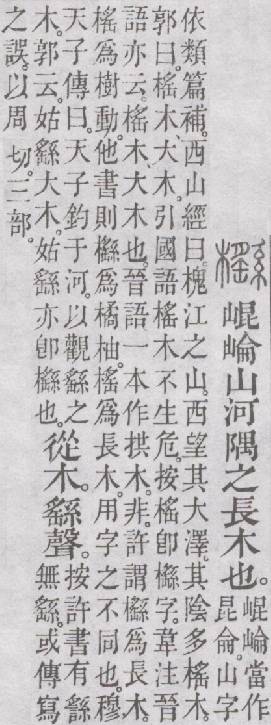 櫾崐崘山河隅之長木也。
崐崘當作
昆侖。山字
依類篇補。西山經曰。槐江之山。西望其大澤。其陰多榣木。
郭曰。榣木、大木。引國語榣木不生危。按榣卽櫾字。韋注晉
語亦云。榣木、大木也。晉語一本作拱木。非。許謂櫾爲長木。
榣爲樹動。他書則櫾爲橘柚。榣爲長木。用字之不同也。穆
天子傳曰。天子釣于河。以觀䌛之
木。郭云。姑䌛、大木。姑䌛亦卽櫾也。
從木。䌛聲。
按許書有䌛
無繇。或傳寫
之誤。以周切。三部。